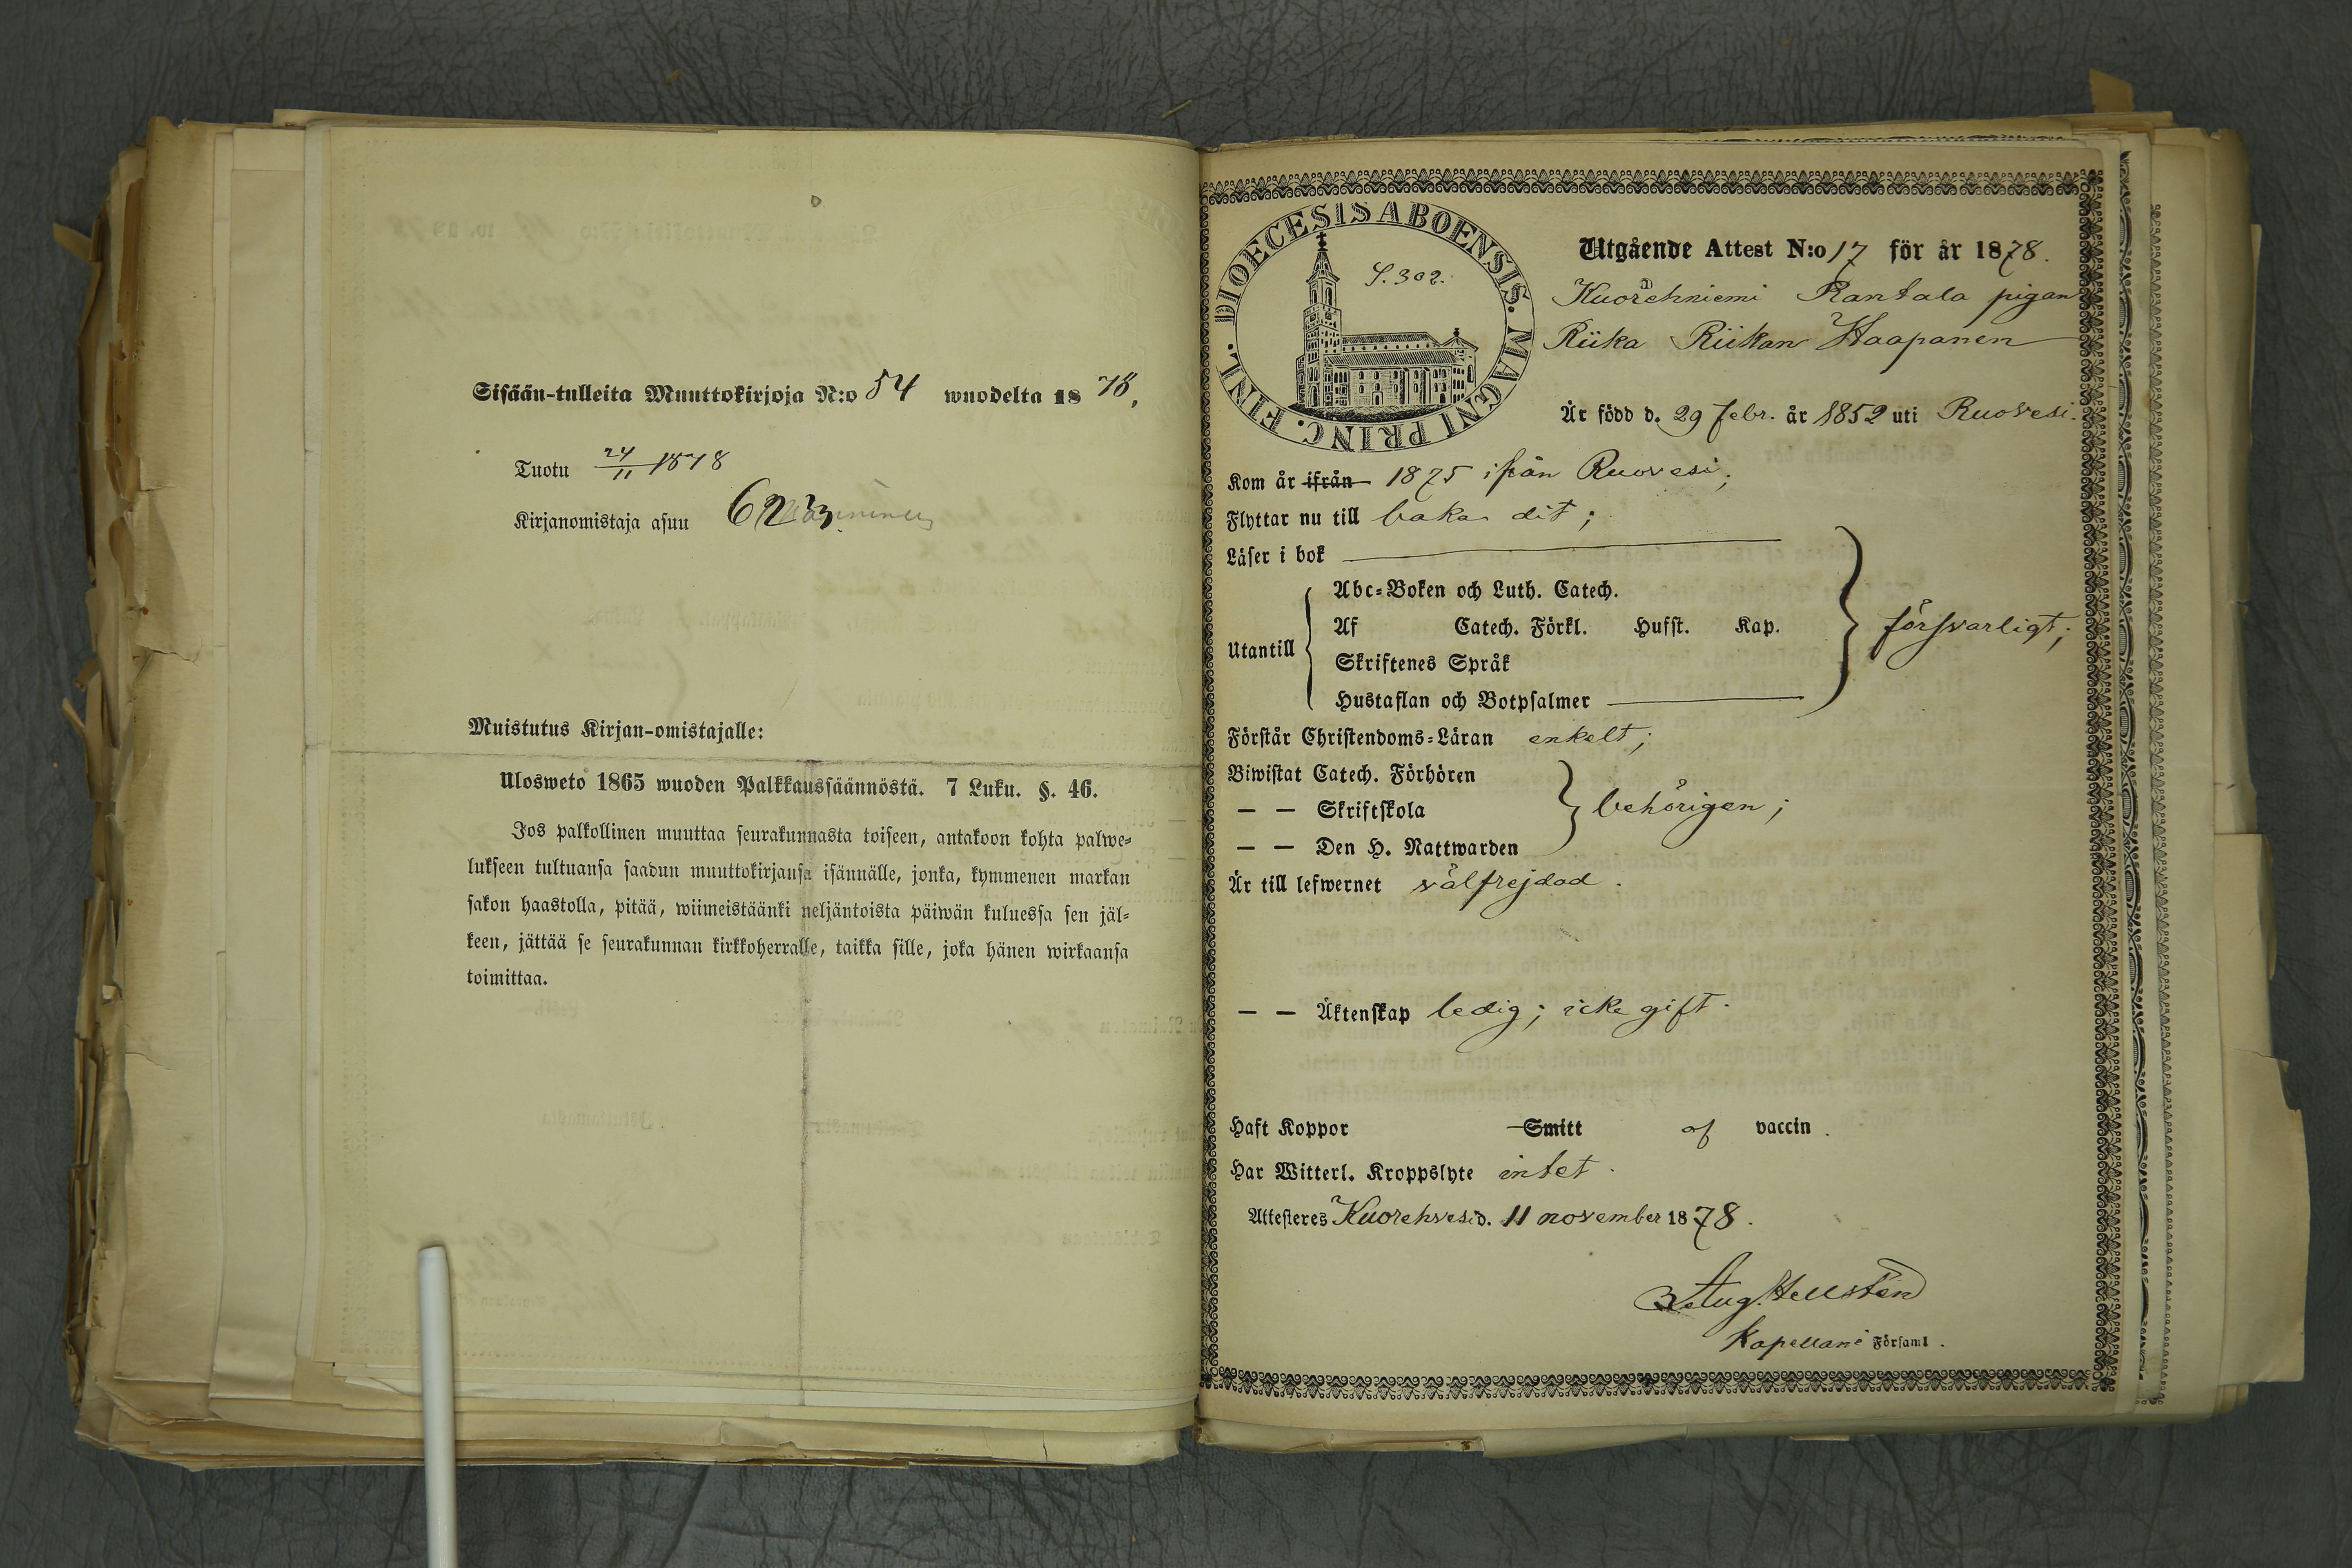 Sisään-tulleita Muuttokirjoja N:o 54 wuodelta 1878.
Tuotu 24/11 1878
Kirjanomistaja asuu 623
Muistutus Kirjan-omistajalle:
Ulosweto 1865 wuoden Palkkaussäännöstä. 7 Luku. §. 46.
Jos palkollinen muuttaa seurakunnasta toiseen, antakoon kohta palwe-
lukseen tultuansa saadun muuttokirjansa isännälle, jonka, kymmenen markan
sakon haastolla, pitää, wiimeistäänki neljäntoista päiwän kuluessa sen jäl-
keen, jättää se seurakunnan kirkkoherralle, taikka sille, joka hänen wirkaansa
toimittaa.
DIOECESIS ABOENSIS. MAGNI PRINC. FINL.
S. 302.
Utgående Attest N:o 17 för år 1878.
Kuorehniemi Rantala pigan
Riika Riikan Haapanen
Är född d. 29 febr. år 1852 uti Ruovesi.
Kom år ifrån 1875 ifrån Ruovesi;
Flyttar nu till baka dit;
Läser i bok
Utantill
Abc-Boken och Luth. Catech.
Af Catech. Förkl. Husst. Kap.
Skriftenes Språk
Hustaflan och Botpsalmer
försvarligt;
Förstår Christendoms-Läran enkelt;
Biwistat Catech. Förhören
— — Skriftskola
— — Den H. Nattwarden
behörigen;
Är till lefwernet välfrejdad.
— — Äktenskap ledig; icke gift.
Haft Koppor Smitt af vaccin.
Har Witterl. Kroppslyte intet.
Attesteres Kuorehvesi d. 11 november 1878.
Aug. Hellstén
Kapellan i Församl.